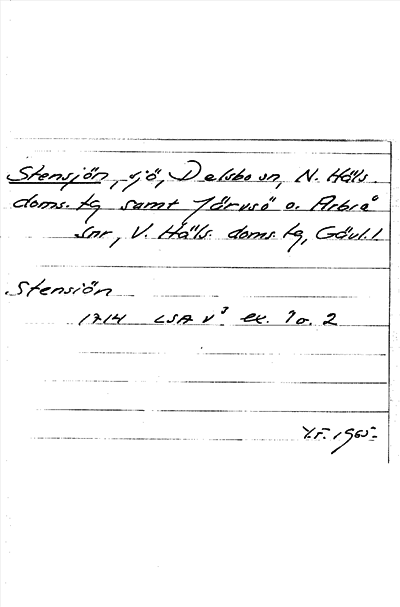 Stensjön, sjö, Delsbo sn, N. Häls.
doms. tg samt Järvsö o. Arbrå
snr, V. Häls. doms. tg, Gävl. l.
Stensiön
1714 LSA V³ ex. 1 o. 2
Y.F. 1965